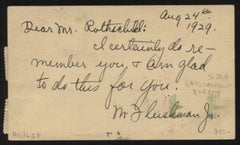 Aug 24th
1929.
Dear Mr. Rothschild:
I certainly do re-
member you & am glad
to do this for you.
M Fleishman Jr.